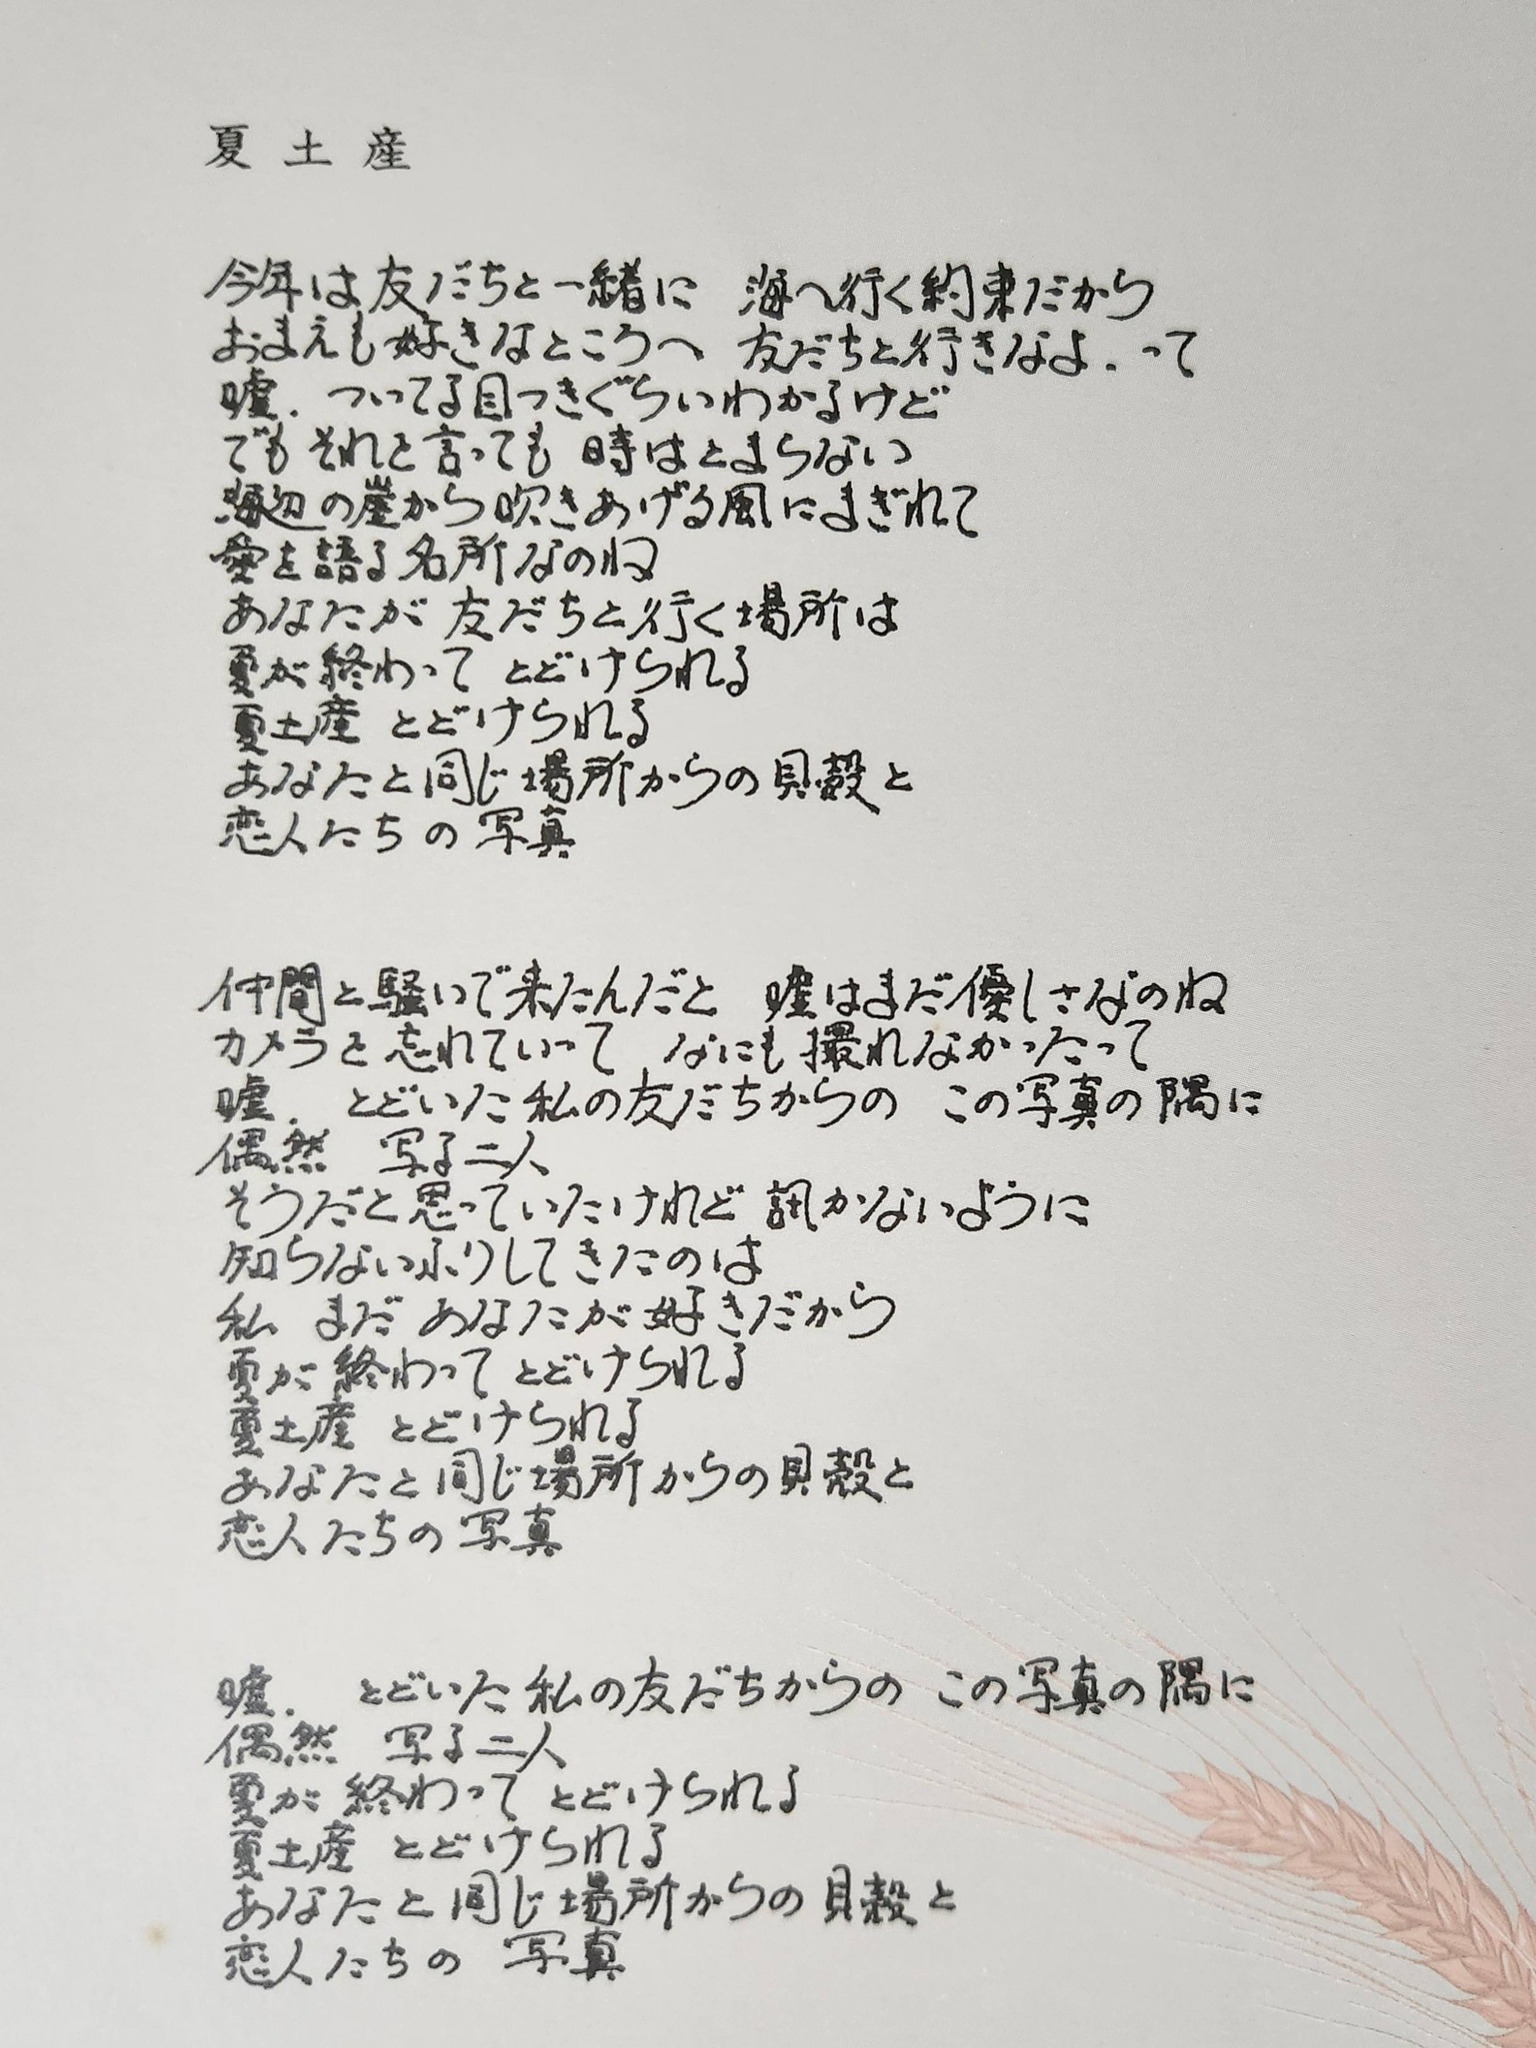 夏土産
今年は友だちと一緒に　海へ行く約束だから
おまえも好きなところへ　友だちと行きなよ．って
嘘．ついてる目つきぐらいわかるけど
でもそれを言っても　時はとまらない
海辺の崖から吹きあげる風にまぎれて
愛を語る名所なのね
あなたが　友だちと行く場所は
夏が終わって　とどけられる
夏土産　とどけられる
あなたと同じ場所からの貝殻と
恋人たちの写真
仲間と騒いで来たんだと　嘘はまだ優しさなのね
カメラを忘れていって　なにも撮れなかったって
嘘．　とどいた私の友だちからの　この写真の隅に
偶然　写る二人
そうだと思っていたけれど　訊かないように
知らないふりしてきたのは
私　まだ　あなたが好きだから
夏が終わって　とどけられる
夏土産　とどけられる
あなたと同じ場所からの貝殻と
恋人たちの写真
嘘．　とどいた私の友だちからの　この写真の隅に
偶然　写る二人
夏が終わって　とどけられる
夏土産　とどけられる
あなたと同じ場所からの貝殻と
恋人たちの　写真